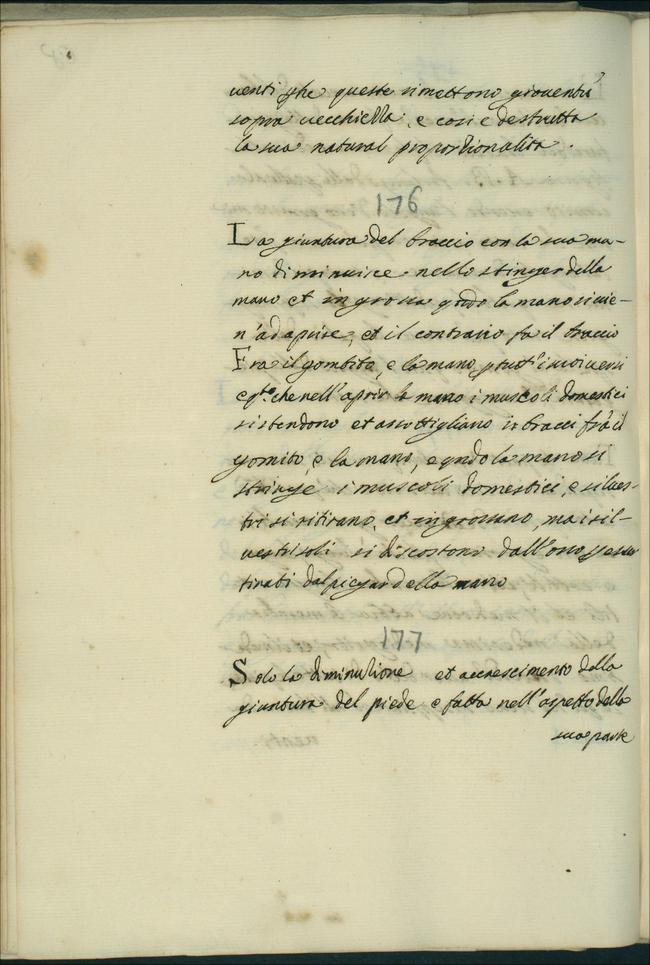 venti, che queste si mettono gioventù
sopra vecchiezza, e così è destrutta
la sua natural proportionalita.
176
La giuntura del braccio con la sua ma-
no diminuisce nello stringer della
mano et ingrossa qndo la mano si vie-
n'ad aprire, et il contrario fa il braccio
Fra il gombito, e la mano p tutt'i suoi versi
e qto. che nell'aprir la mano i muscoli domestici
si stendono et assottigliano il bracci fra il
gomito, e la mano, e qndo la mano si
stringe i muscoli domestici, e silves-
tri si ritirano, et ingrossano, ma i sil-
vestri soli si discostono dall'osso p esser
tirati dal piegar della mano
177
Solo la diminutione et accrescimento della
giuntura del piede è fatta nell'aspetto della
sua parte